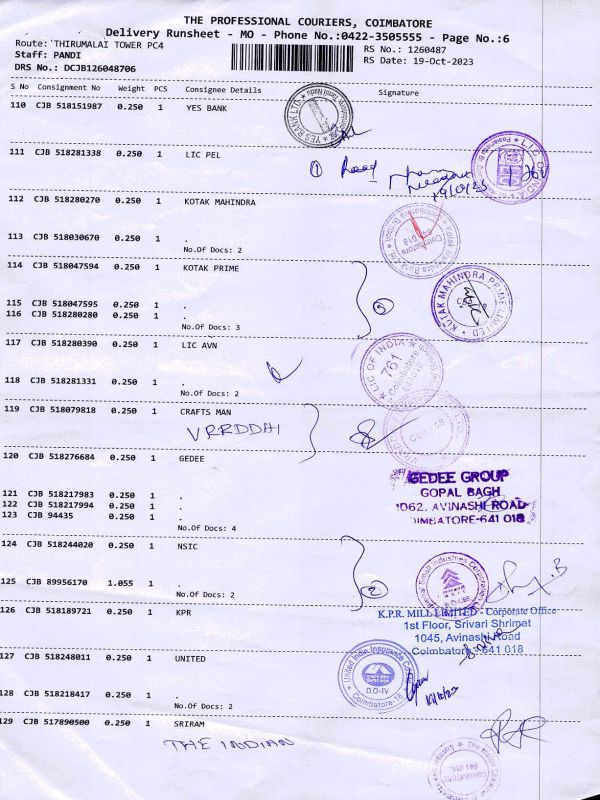 THE PROFESSIONAL COURIERS, COIMBATORE
Delivery Runsheet - MO - Phone No.:0422-3505555 - Page No.:6
Route: THIRUMALAI TOWER PC4
RS No.: 1260487
Staff: PANDI
RS Date: 19-Oct-2023
DRS No.: DCJB126048706
S No Consignment No Weight PCS Consignee Details Signature
110 CJB 518151987 0.250 1 YES BANK
111 CJB 518281338 0.250 1 LIC PEL
112 CJB 518280270 0.250 1 KOTAK MAHINDRA
113 CJB 518030670 0.250 1 .
No.Of Docs: 2
114 CJB 518047594 0.250 1 KOTAK PRIME
KOTAK MAHINDRA PRIME LIMITED
115 CJB 518047595 0.250 1 .
116 CJB 518280280 0.250 1 .
No.Of Docs: 3
117 CJB 518280390 0.250 1 LIC AVN
LIC OF INDIA
761
118 CJB 518281331 0.250 1 .
No.Of Docs: 2
119 CJB 518079818 0.250 1 CRAFTS MAN
VRRDDHI
120 CJB 518276684 0.250 1 GEDEE
GEDEE GROUP
GOPAL BAGH
1062, AVINASHI ROAD
OIMBATORE-641 018
121 CJB 518217983 0.250 1 .
122 CJB 518217994 0.250 1 .
123 CJB 94435 0.250 1 .
No.Of Docs: 4
124 CJB 518244020 0.250 1 NSIC
125 CJB 89956170 1.055 1 .
No.Of Docs: 2
2
126 CJB 518189721 0.250 1 KPR
K.P.R. MILL LIMITED - Corporate Office
1st Floor, Srivari Shrimat
1045, Avinashi Road
Coimbatore - 641 018
127 CJB 518248011 0.250 1 UNITED
United India Insurance Co
D.O-IV
Coimbatore-18
128 CJB 518218417 0.250 1 .
No.Of Docs: 2
129 CJB 517890500 0.250 1 SRIRAM
THE INDIAN